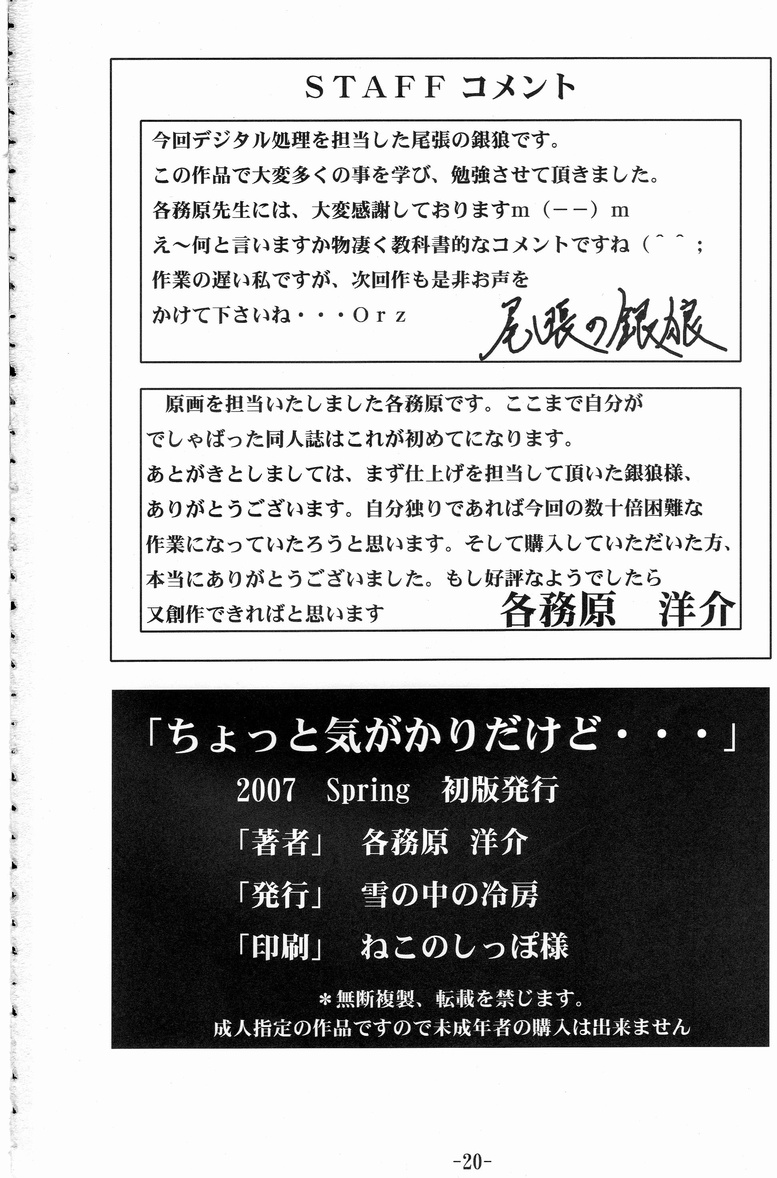 STAFF コメント
今回デジタル処理を担当した尾張の銀狼です。
この作品で大変多くの事を学び、勉強させて頂きました。
各務原先生には、大変感謝しておりますｍ（－－）ｍ
え～何と言いますか物凄く教科書的なコメントですね（＾＾；
作業の遅い私ですが、次回作も是非お声を
かけて下さいね・・・Ｏｒｚ
尾張の銀狼
　原画を担当いたしました各務原です。ここまで自分が
でしゃばった同人誌はこれが初めてになります。
あとがきとしましては、まず仕上げを担当して頂いた銀狼様、
ありがとうございます。自分独りであれば今回の数十倍困難な
作業になっていたろうと思います。そして購入していただいた方、
本当にありがとうございました。もし好評なようでしたら
又創作できればと思います
各務原　洋介
「ちょっと気がかりだけど・・・」
2007　Spring　初版発行
「著者」　各務原　洋介
「発行」　雪の中の冷房
「印刷」　ねこのしっぽ様
＊無断複製、転載を禁じます。
成人指定の作品ですので未成年者の購入は出来ません
-20-